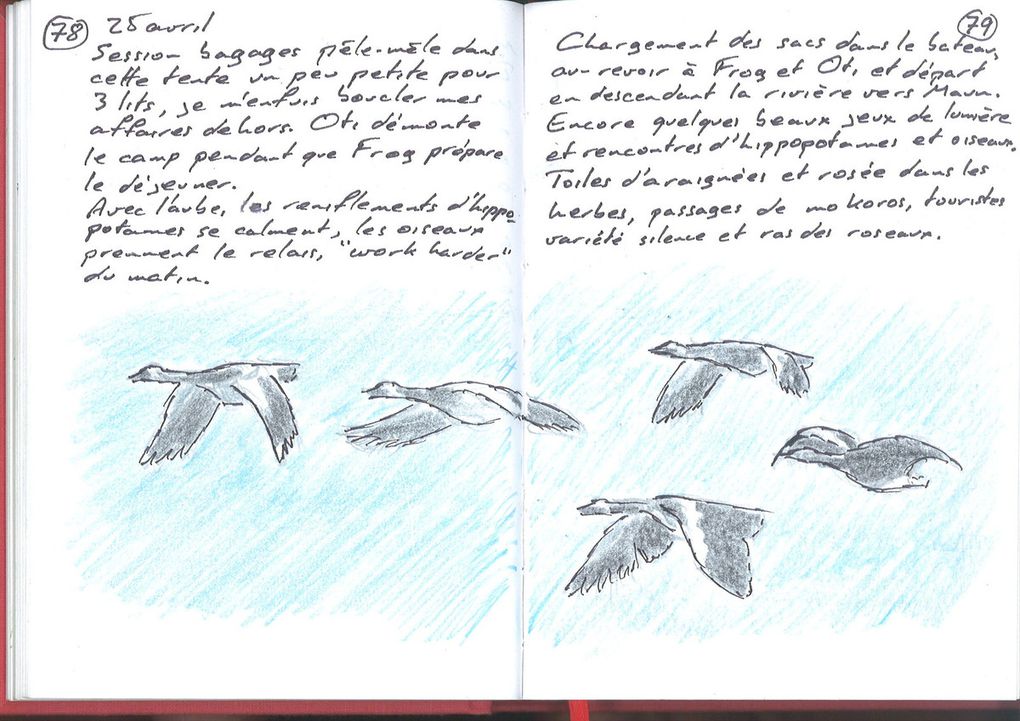 78
25 avril
Session bagages pêle-mêle dans
cette tente un peu petite pour
3 lits, je m'enfuis boucler mes
affaires dehors. Oti démonte
le camp pendant que Frog prépare
le déjeuner.
Avec l'aube, les reniflements d'hippo-
potames se calment, les oiseaux
prennent le relais, "work harder"
du matin.
79
Chargement des sacs dans le bateau,
au revoir à Frog et Oti et départ
en descendant la rivière vers Maun.
Encore quelques beaux jeux de lumière
et rencontres d'hippopotames et oiseaux.
Toiles d'araignées et rosée dans les
herbes, passages de mokoros, touristes
variété silence et ras des roseaux.